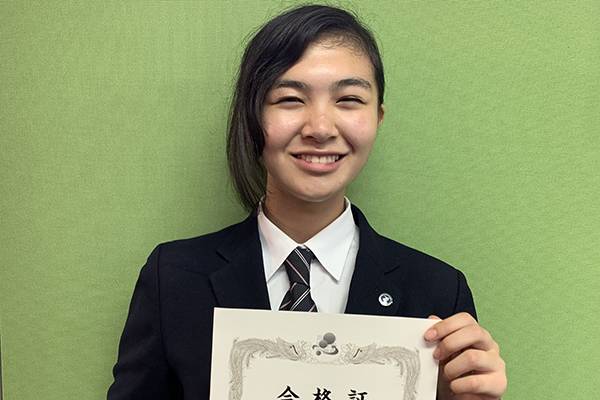 合格証